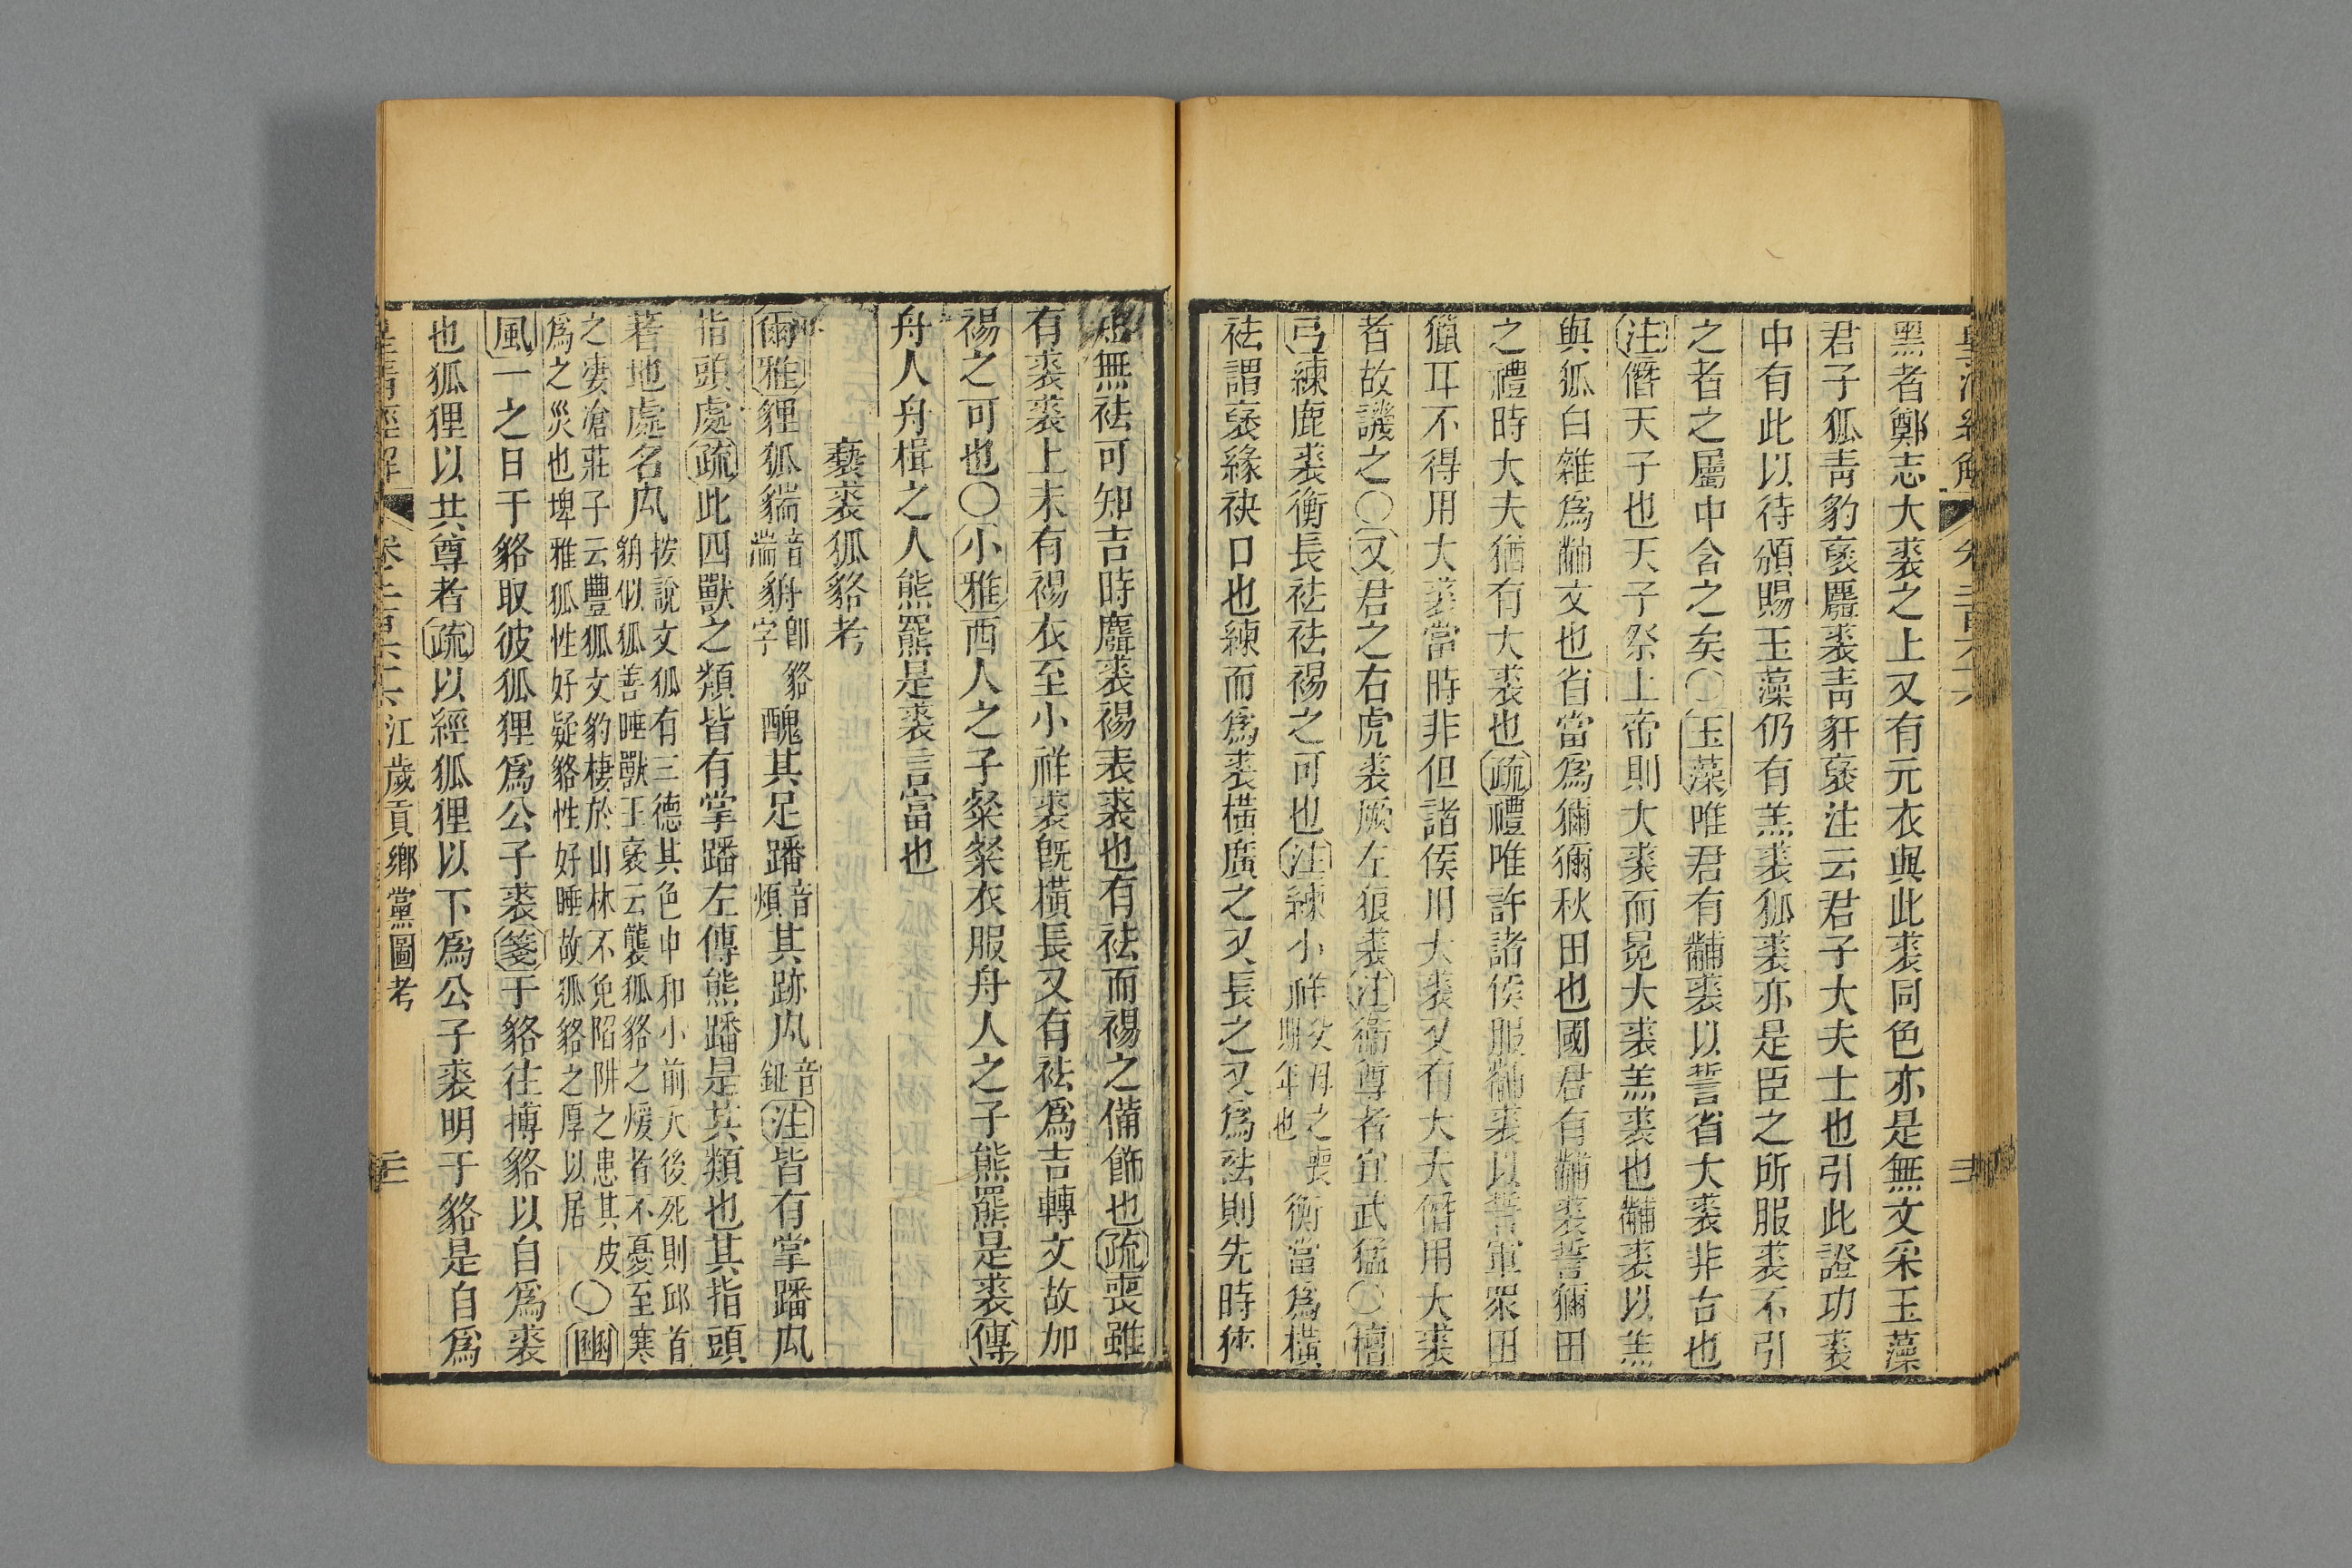 皇清經解 卷二百六十六 三
黑者鄭志大裘之上又有元衣與此裘同色亦是無文采玉藻
君子狐靑豹褎麛裘靑豻褎注云君子大夫士也引此證功裘
中有此以待頒賜玉藻仍有羔裘狐裘亦是臣之所服裘不引
之者之屬中含之矣〇玉藻唯君有黼裘以誓省大裘非古也
注僭天子也天子祭上帝則大裘而冕大裘羔裘也黼裘以羔
與狐白雜爲黼文也省當爲獮獮秋田也國君有黼裘誓獮田
之禮時大夫猶有大裘也疏禮唯許諸侯服黼裘以誓軍衆田
獵耳不得用大裘當時非但諸侯用大裘又有大夫僭用大裘
者故譏之〇又君之右虎裘厥左狼裘注衛尊者宜武猛〇檀
弓練鹿裘衡長袪袪裼之可也注練小祥父母之喪期年也衡當爲橫
袪謂褎緣袂口也練而爲裘橫廣之又長之又爲袪則先時狹
短無袪可知吉時麛裘裼表裘也有袪而裼之備飾也疏喪雖
有裘裘上未有裼衣至小祥裘旣橫長又有袪爲吉轉文故加
裼之可也〇小雅西人之子粲粲衣服舟人之子熊羆是裘傳
舟人舟楫之人熊羆是裘言富也
褻裘狐貉考
爾雅貍狐貒音湍貈舟卽貉字醜其足蹯音煩其跡厹音鈕注皆有掌蹯厹
指頭處疏此四獸之類皆有掌蹯左傳熊蹯是其類也其指頭
著地處名厹按說文狐有三德其色中和小前大後死則邱首貈似狐善睡獸王褎云襲狐貉之煖者不憂至寒
之凄滄莊子云豐狐文豹棲於山林不免陷阱之患其皮爲之災也埤雅狐性好疑貉性好睡故狐貉之厚以居〇豳
風一之日于貉取彼狐狸爲公子裘箋于貉往搏貉以自爲裘
也狐狸以共尊者疏以經狐狸以下爲公子裘明于貉是自爲
皇淸經解 卷二百六十六 江歲貢鄉黨圖考 三